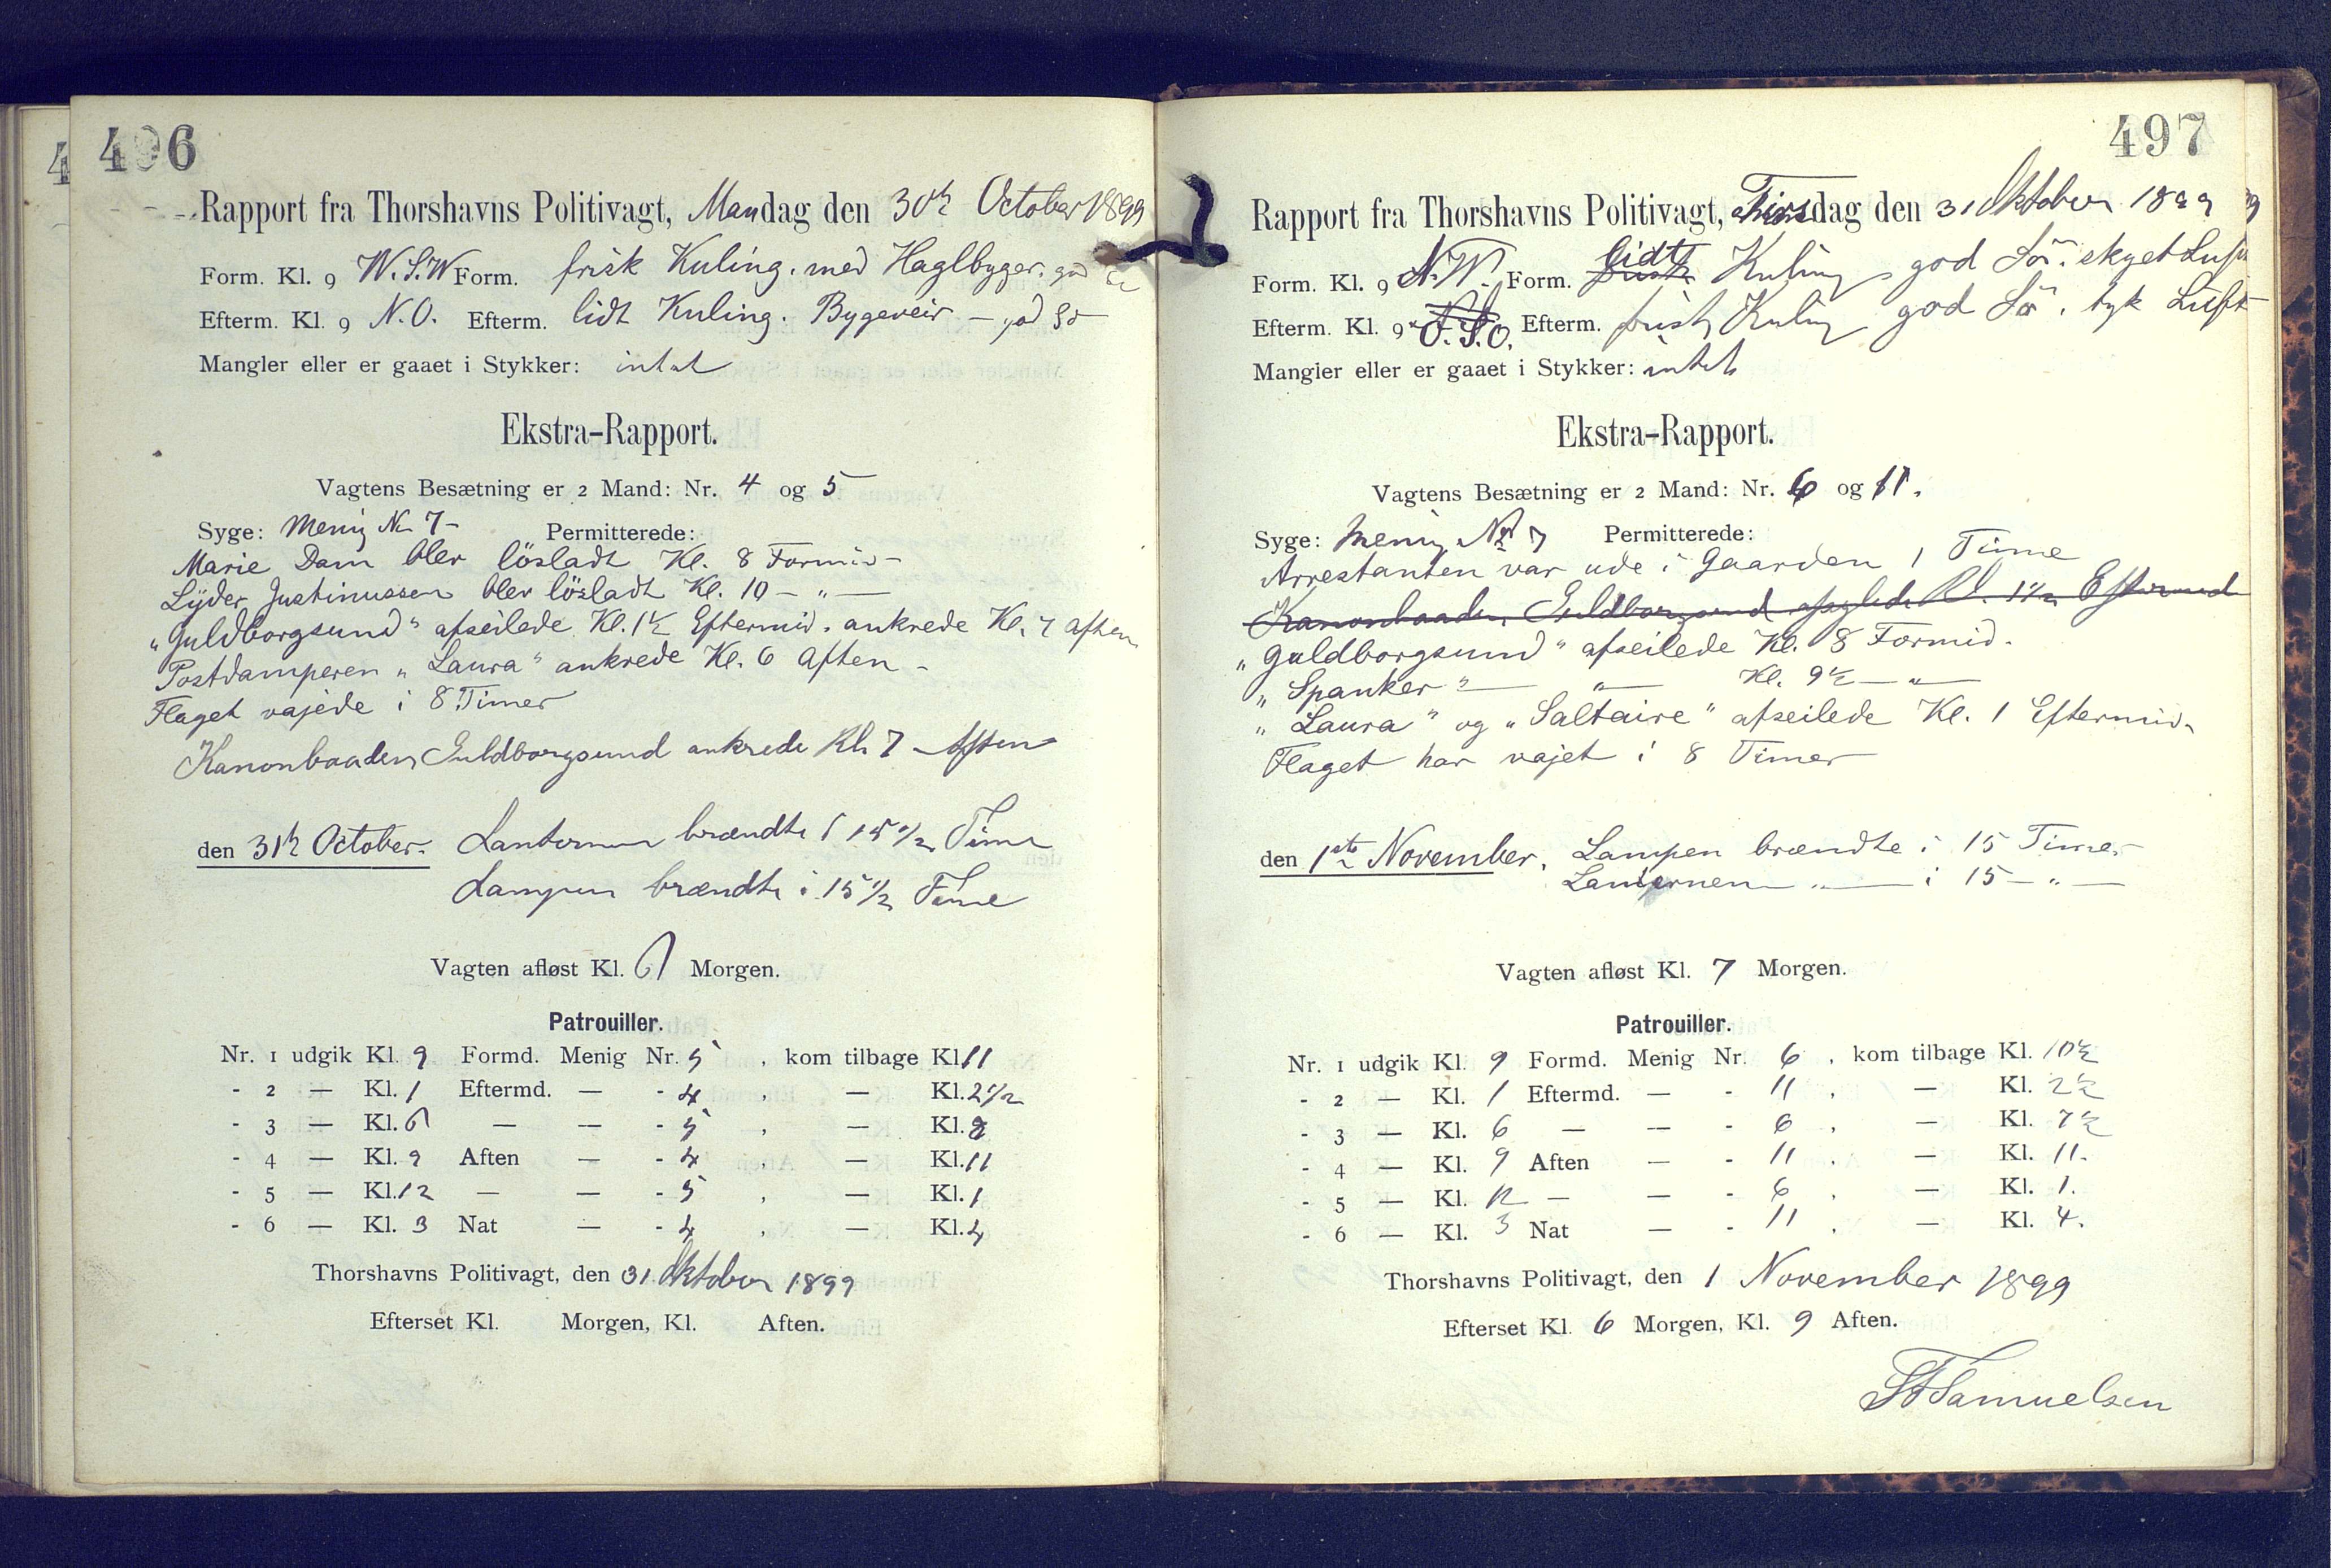 496
Rapport fra Thorshavns Politivagt, Mandag den 30th October 1899
Form. Kl. 9 W.S.W Form. frisk Kuling. med Haglbyger. god Sö
Efterm. Kl. 9 N.O. Efterm. lidt Kuling. Bygeveir – god Sö
Mangler eller er gaaet i Stykker: intet
Ekstra-Rapport.
Vagtens Besætning er 2 Mand: Nr. 4 og 5
Syge: Menig No 7 – Permitterede:
Marie Dam blev lösladt Kl. 8 Formid –
Lyder Justinussen blev lösladt Kl. 10 – " –
"Guldborgsund" afseilede Kl. 1½ Eftermid. ankrede Kl. 7 aften
Postdamperen "Laura" ankrede Kl. 6 Aften –
Flaget vajede i 8 Timer
Kanonbaaden Guldborgsund ankrede Kl. 7 Aften
den 31th October. Lanternen brændte i 15½ Time
Lampen brændte i 15½ Time
Vagten afløst Kl. 6 Morgen.
Patrouiller.
Nr. 1 udgik Kl. 9 Formd. Menig Nr. 5, kom tilbage Kl. 11
- 2 — Kl. 1 Eftermd. — - 4, — Kl. 2½
- 3 — Kl. 6 — — - 5, — Kl.
- 4 — Kl. 9 Aften — - 4, — Kl. 11
- 5 — Kl. 12 — — - 5, — Kl. 1
- 6 — Kl. 3 Nat — - 4, — Kl. 4
Thorshavns Politivagt, den 31 Oktober 1899
Efterset Kl. Morgen, Kl. Aften.
497
Rapport fra Thorshavns Politivagt, Tirsdag den 31 Oktober 1899
Form. Kl. 9 N.W. Form. frisk lidt Kuling god Sö. skyet Luft
Efterm. Kl. 9 O.S.O. Efterm. frisk Kuling god Sö. tyk Luft
Mangler eller er gaaet i Stykker: intet
Ekstra-Rapport.
Vagtens Besætning er 2 Mand: Nr. 6 og 11.
Syge: Menig No 7 Permitterede:
Arrestanten var ude i Gaarden 1 Time
Kanonbaaden Guldborgsund afseglede Kl. 1½ Eftermid
"Guldborgsund" afseilede Kl. 8 Formid.
"Spanker" — " — Kl. 9½ — " —
"Laura" og "Saltaire" afseilede Kl. 1 Eftermid.
Flaget har vajet i 8 Timer
den 1ste November. Lampen brændte i 15 Timer
Lanternen — " — i 15 – " –
Vagten afløst Kl. 7 Morgen.
Patrouiller.
Nr. 1 udgik Kl. 9 Formd. Menig Nr. 6, kom tilbage Kl. 10½
- 2 — Kl. 1 Eftermd. — - 11, — Kl. 2½
- 3 — Kl. 6 — — - 6, — Kl. 7½
- 4 — Kl. 9 Aften — - 11, — Kl. 11.
- 5 — Kl. 12 — — - 6, — Kl. 1.
- 6 — Kl. 3 Nat — - 11, — Kl. 4.
Thorshavns Politivagt, den 1 November 1899
Efterset Kl. 6 Morgen, Kl. 9 Aften.
Samuelsen